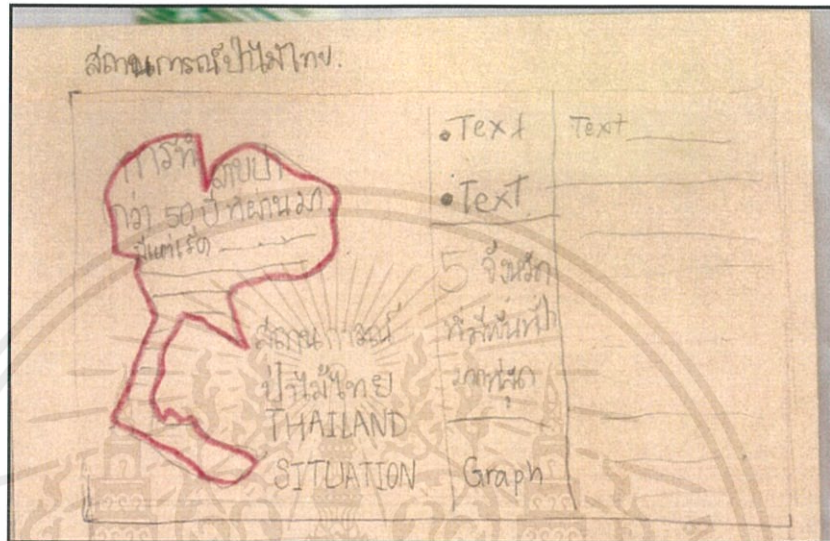 สถานการณ์ป่าไม้ไทย.
กว่า 50 ปี ที่ผ่านมา
สถานการณ์
ป่าไม้ไทย
THAILAND
SITUATION
• Text
• Text
5 จังหวัด
ที่มีพื้นที่ป่า
มากที่สุด
Graph
Text